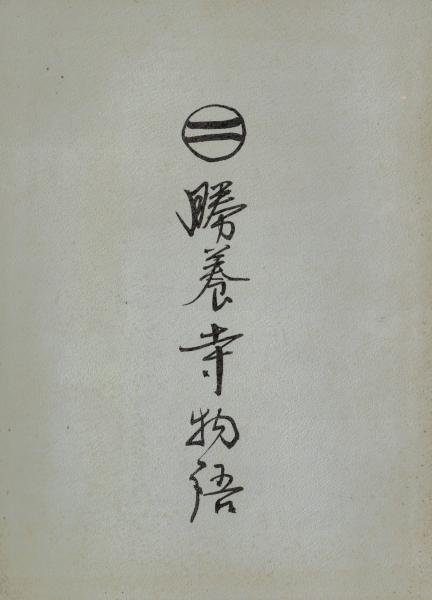 勝養寺物語